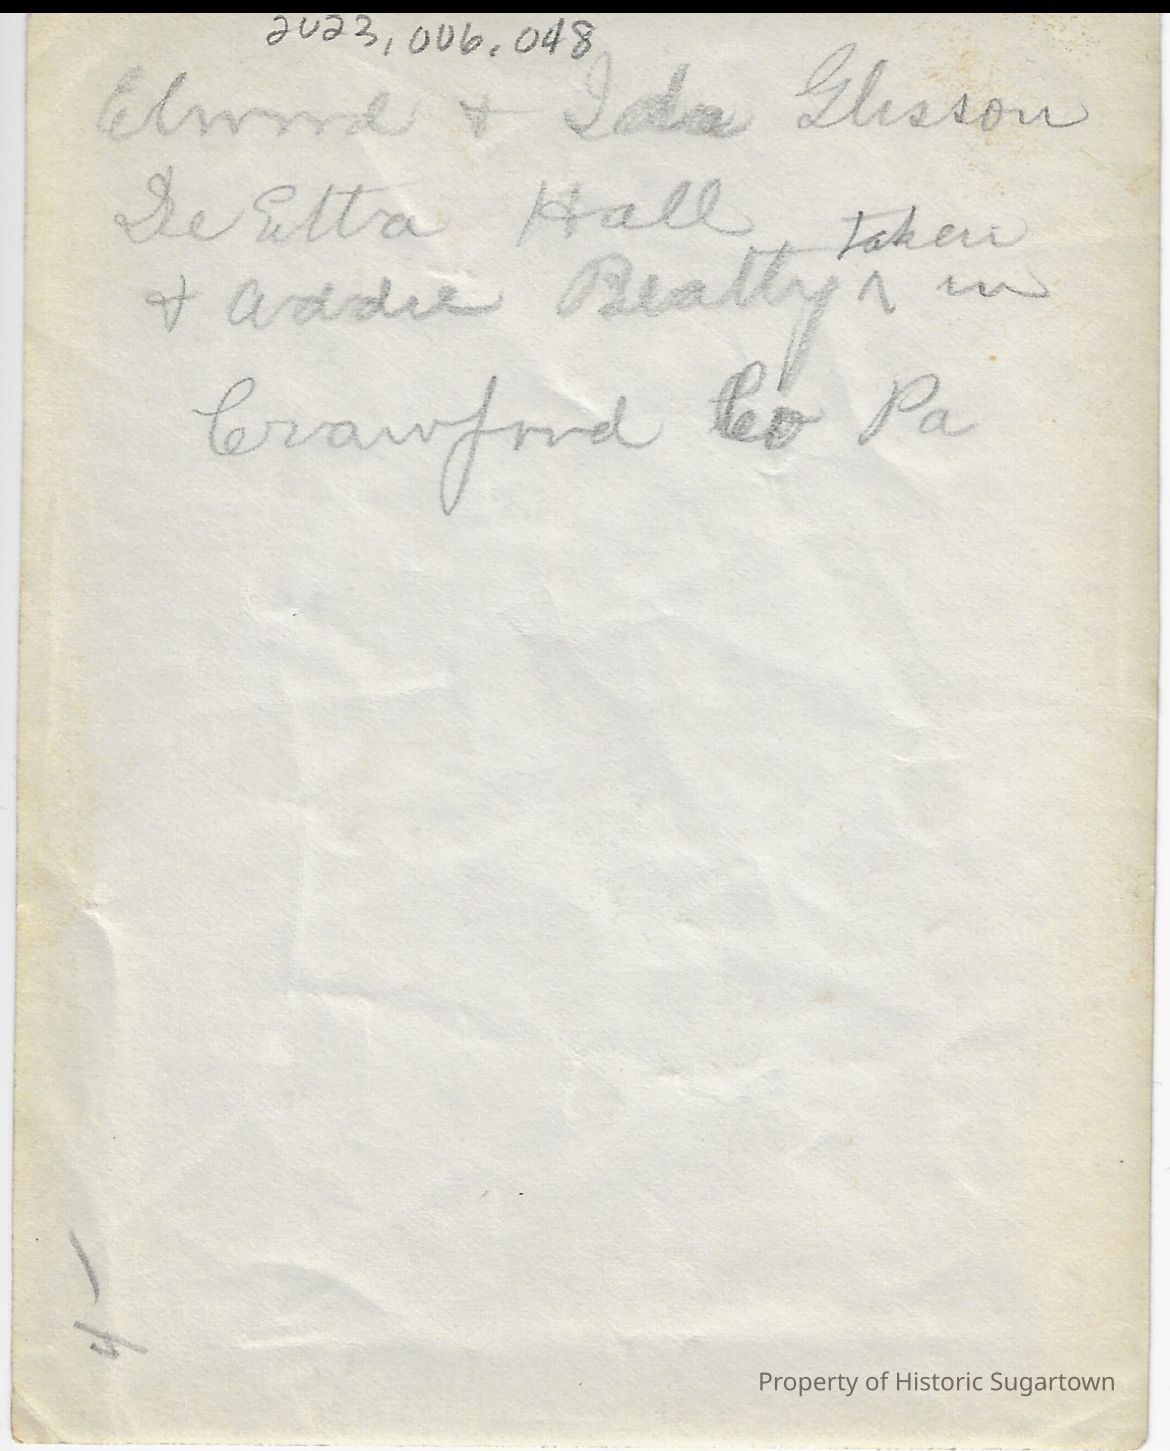 2023.006.048
Elwood + Ida Glisson
De Etta Hall
+ Addie Beatty ^ taken in
Crawford Co Pa
4
Property of Historic Sugartown